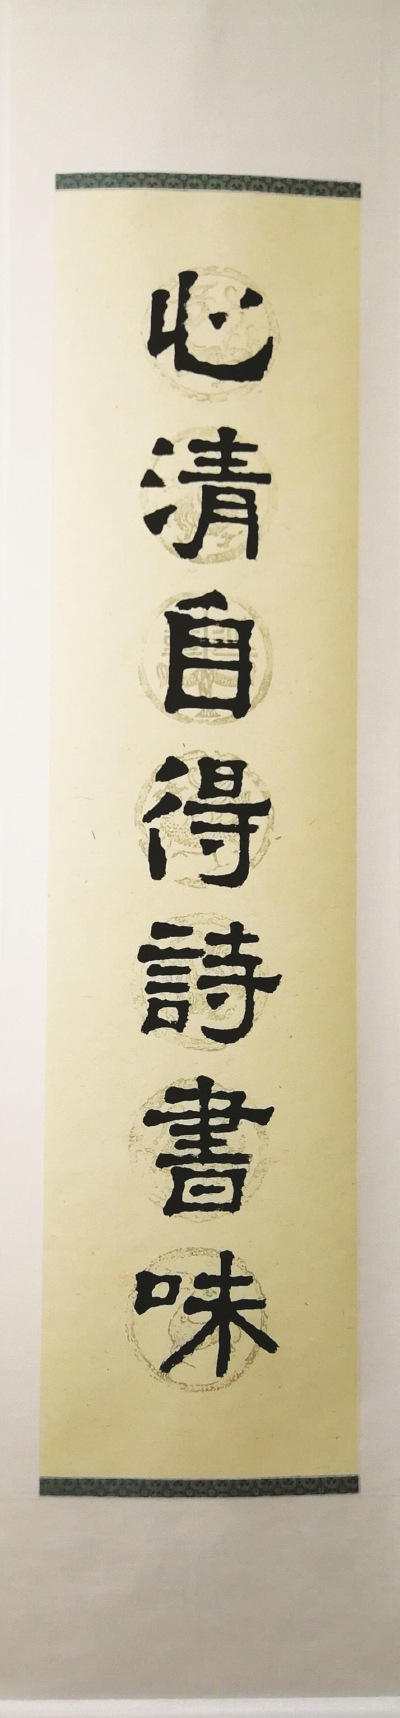 心清自得詩書味